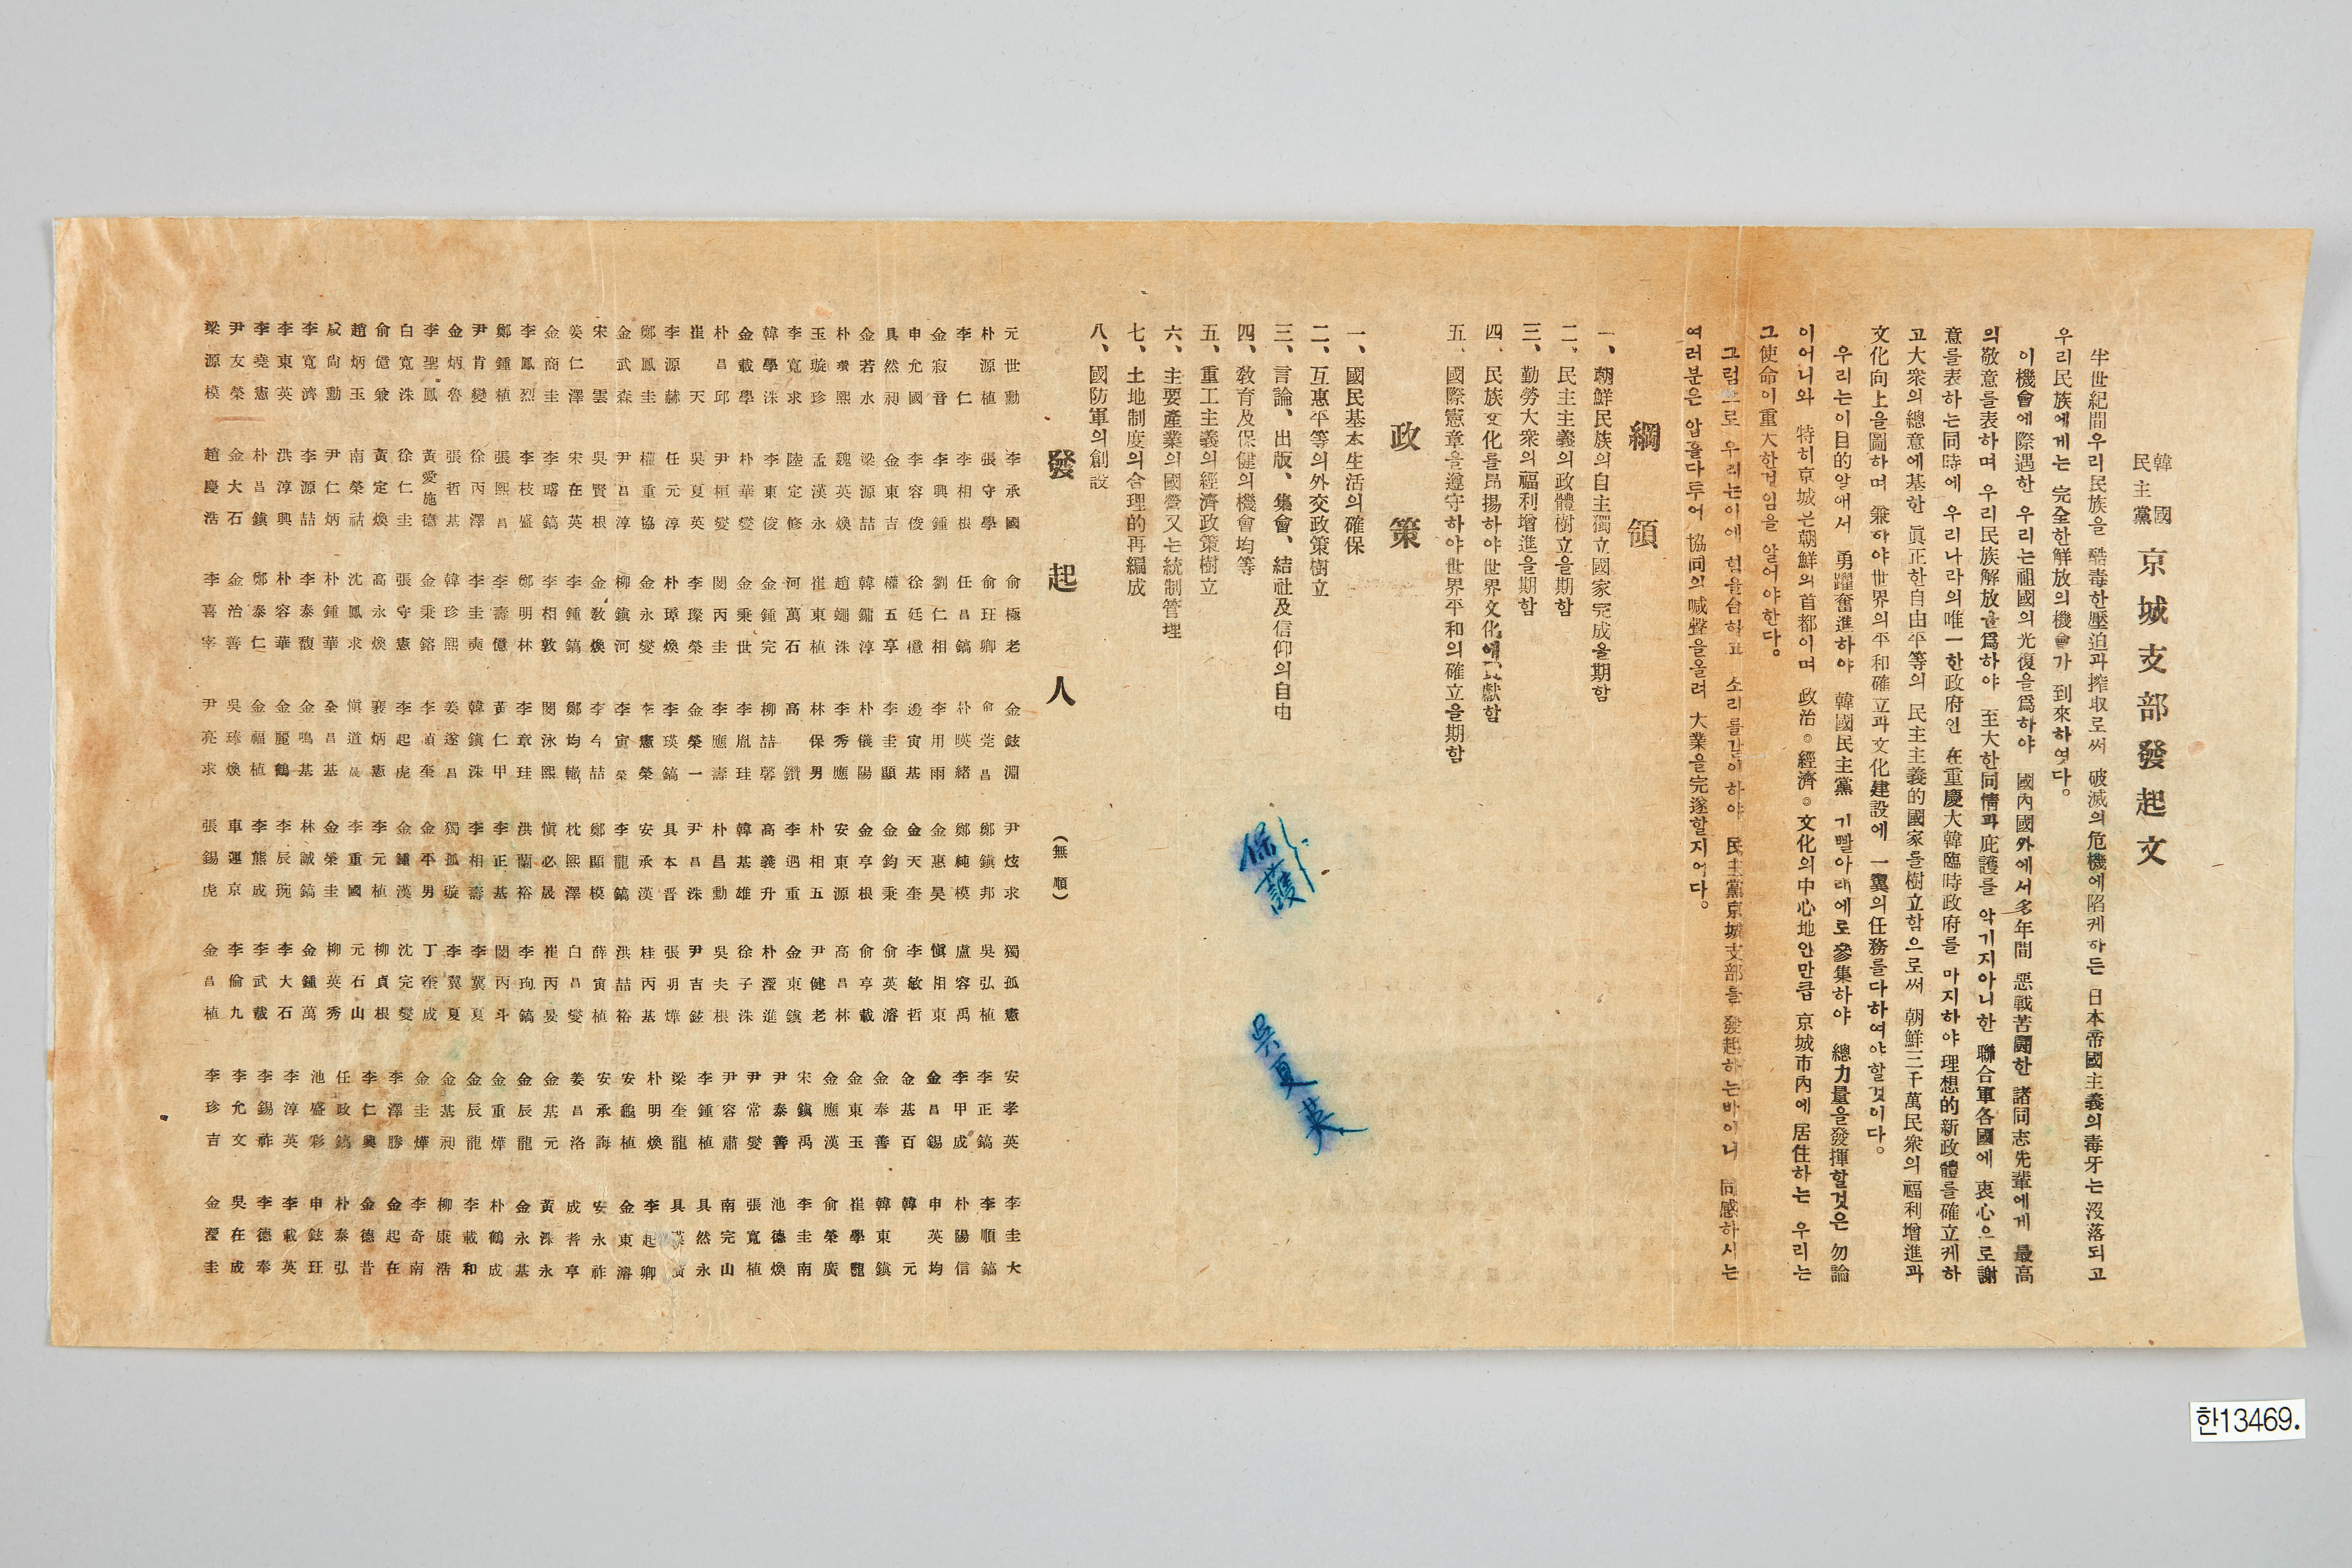 韓國民主黨 京城支部發起文
半世紀間우리民族을 酷毒한壓迫과搾取로써 破滅의危機에陷케하든 日本帝國主義의毒牙는沒落되고
우리民族에게는 完全한解放의機會가 到來하엿다。
이機會에際遇한 우리는祖國의光復을爲하야 國內國外에서多年間 惡戰苦鬪한 諸同志先輩에게 最高
의敬意를表하며 우리民族解放을爲하야 至大한同情과庇護를 악기지아니한 聯合軍各國에 衷心으로謝
意를表하는同時에 우리나라의唯一한政府인 在重慶大韓臨時政府를 마지하야理想的新政體를確立케하
고大衆의總意에基한 眞正한自由平等의 民主主義的國家를樹立함으로써 朝鮮三千萬民衆의福利增進과
文化向上을圖하며 兼하야世界의平和確立과文化建設에 一翼의任務를다하여야할것이다。
우리는이目的알애서 勇躍奮進하야 韓國民主黨 기빨아래에로參集하야 總力量을發揮할것은勿論
이어니와 特히京城은朝鮮의首都이며 政治◦經濟◦文化의中心地안만큼 京城市內에居住하는 우리는
그使命이重大한것임을 알어야한다。
그럼으로 우리는이에 힘을合하고 소리를같이하야 民主黨京城支部를 發起하는바이니 同感하시는
여러분은 압흘다투어 協同의喊聲을올려 大業을完遂할지어다。
綱領
一、朝鮮民族의自主獨立國家完成을期함
二、民主主義의政體樹立을期함
三、勤勞大衆의福利增進을期함
四、民族文化를昂揚하야世界文化에貢獻함
五、國際憲章을遵守하야世界平和의確立을期함
政策
一、國民基本生活의確保
二、互惠平等의外交政策樹立
三、言論、出版、集會、結社及信仰의自由
四、敎育及保健의機會均等
五、重工主義의經濟政策樹立
六、主要產業의國營又는統制管理
七、土地制度의合理的再編成
八、國防軍의創設
保護
吳夏英
發起人 (無順)
元世勳 李承國 俞極老 金鉉淵 尹炫求 獨孤憲 安孝英 李圭大
朴源植 張守學 俞珏卿 俞莞昌 鄭鎭邦 吳弘植 李正鎬 李順鎬
李仁 李相根 任昌鎬 朴暎緖 鄭純模 盧容禹 李甲成 朴陽信
金寂音 李興鍾 劉仁相 李用雨 金惠昊 愼相東 金昌錫 申英均
申允國 李容俊 徐廷檍 邊寅基 金天奎 李敏哲 金基百 韓元
具然昶 金東吉 權五享 李圭顯 金鈞秉 俞英濬 金奉善 韓東鎭
金若水 梁源喆 韓鏞淳 朴儀陽 金亨根 俞亨載 金東玉 崔學龍
朴瓚熙 魏英煥 趙蠣洙 李秀應 安東源 高昌林 金應漢 俞榮廣
玉璇珍 孟漢永 崔東植 林保男 朴相五 尹健老 宋鎭禹 李圭南
李寬求 陸定修 河萬石 高鑽 李遇重 金東鎭 尹泰善 池德煥
韓學洙 李東俊 金鍾完 柳喆馨 高義升 朴瀅進 尹常燮 張寬植
金載學 朴華燮 金秉世 李胤珪 韓基雄 徐子洙 尹容肅 南完山
朴昌邱 尹桓燮 閔丙圭 李應壽 朴昌勳 吳夫根 李鍾植 具然永
崔天 吳夏英 李璨榮 金榮一 尹昌洙 尹吉鉉 梁奎龍
李源赫 任元淳 朴璋煥 李瑛鎬 具本晋 張明燁 朴明煥 李起卿
鄭鳳圭 權重協 金永燮 李憲榮 安承漢 桂丙基 安龜植 金東濬
金武森 尹昌淳 柳鎭河 李寅榮 李龍鎬 洪喆裕 安承誨 安永祚
宋雲 吳賢根 金敎煥 李今喆 鄭顯模 薛寅植 姜昌洛
姜仁澤 宋在英 李鍾鎬 鄭均轍 枕熙澤 白昌燮 金基元 黃洙永
金商圭 李璿鎬 李相敦 閔泳熙 愼必晟 崔丙旻 金辰龍 金永基
李鳳烈 李枝盛 鄭明林 李章珪 洪蘭裕 李珣鎬 金重燁 朴鶴成
鄭鍾植 張熙昌 李壽億 黃仁甲 李正基 閔丙斗 金辰龍 李載和
尹肯燮 徐丙澤 李圭奭 韓鎭洙 李相壽 李冀夏 金基昶 柳康浩
金炳魯 張哲基 韓珍熙 姜遂昌 獨孤璇 李翼夏 金圭燁 李奇南
李聖鳳 黃愛施德 金秉鎔 李貞奎 金平男 丁奎成 李澤勝 金起在
白寬洙 徐仁圭 張守憲 李起虎 金鍾漢 沈完燮 李仁興 金德昔
俞億兼 黃定煥 高永煥 襄炳憲 李元植 柳貞根 任政鎬 朴泰弘
趙炳玉 南榮祜 沈鳳求 愼道晟 李重國 元石山 池盛彩 申鉉珏
咸尙勳 尹仁炳 朴鍾華 全昌基 金榮圭 柳英秀 李淳英 李載英
李寬濟 李源喆 李泰馥 金鳴基 林誠鎬 金鍾萬 李錫祚 李德奉
李東英 洪淳興 朴容華 金麗鶴 李辰琬 李大石 李允文 吳在成
李堯憲 朴昌鎭 鄭泰仁 金福植 李熊成 李武載 李珍吉 金瀅圭
尹友榮 金大石 金治善 吳瑧煥 車運京 李倫九
梁源模 趙慶浩 李喜宰 尹亮求 張錫虎 金昌植
한13469.